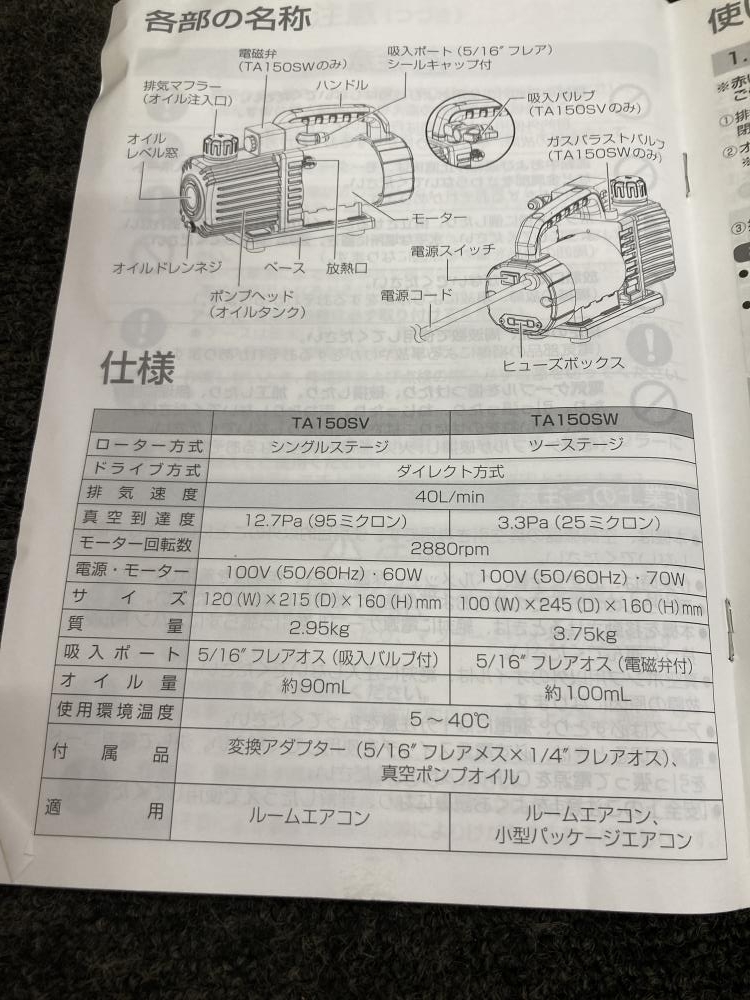 各部の名称
電磁弁
(TA150SWのみ)
吸入ポート (5/16″フレア)
シールキャップ付
排気マフラー
(オイル注入口)
ハンドル
吸入バルブ
(TA150SVのみ)
オイル
レベル窓
ガスバラストバルブ
(TA150SWのみ)
モーター
電源スイッチ
オイルドレンネジ
ベース
放熱口
電源コード
ポンプヘッド
(オイルタンク)
ヒューズボックス
仕様
TA150SV TA150SW
ローター方式 シングルステージ ツーステージ
ドライブ方式 ダイレクト方式
排気速度 40L/min
真空到達度 12.7Pa (95ミクロン) 3.3Pa (25ミクロン)
モーター回転数 2880rpm
電源・モーター 100V (50/60Hz)・60W 100V (50/60Hz)・70W
サイズ 120 (W)×215 (D)×160 (H)mm 100 (W)×245 (D)×160 (H)mm
質量 2.95kg 3.75kg
吸入ポート 5/16″フレアオス (吸入バルブ付) 5/16″フレアオス (電磁弁付)
オイル量 約90mL 約100mL
使用環境温度 5～40℃
付属品 変換アダプター (5/16″フレアメス×1/4″フレアオス)、
真空ポンプオイル
適用 ルームエアコン ルームエアコン、
小型パッケージエアコン
1.
①排
②オ
③